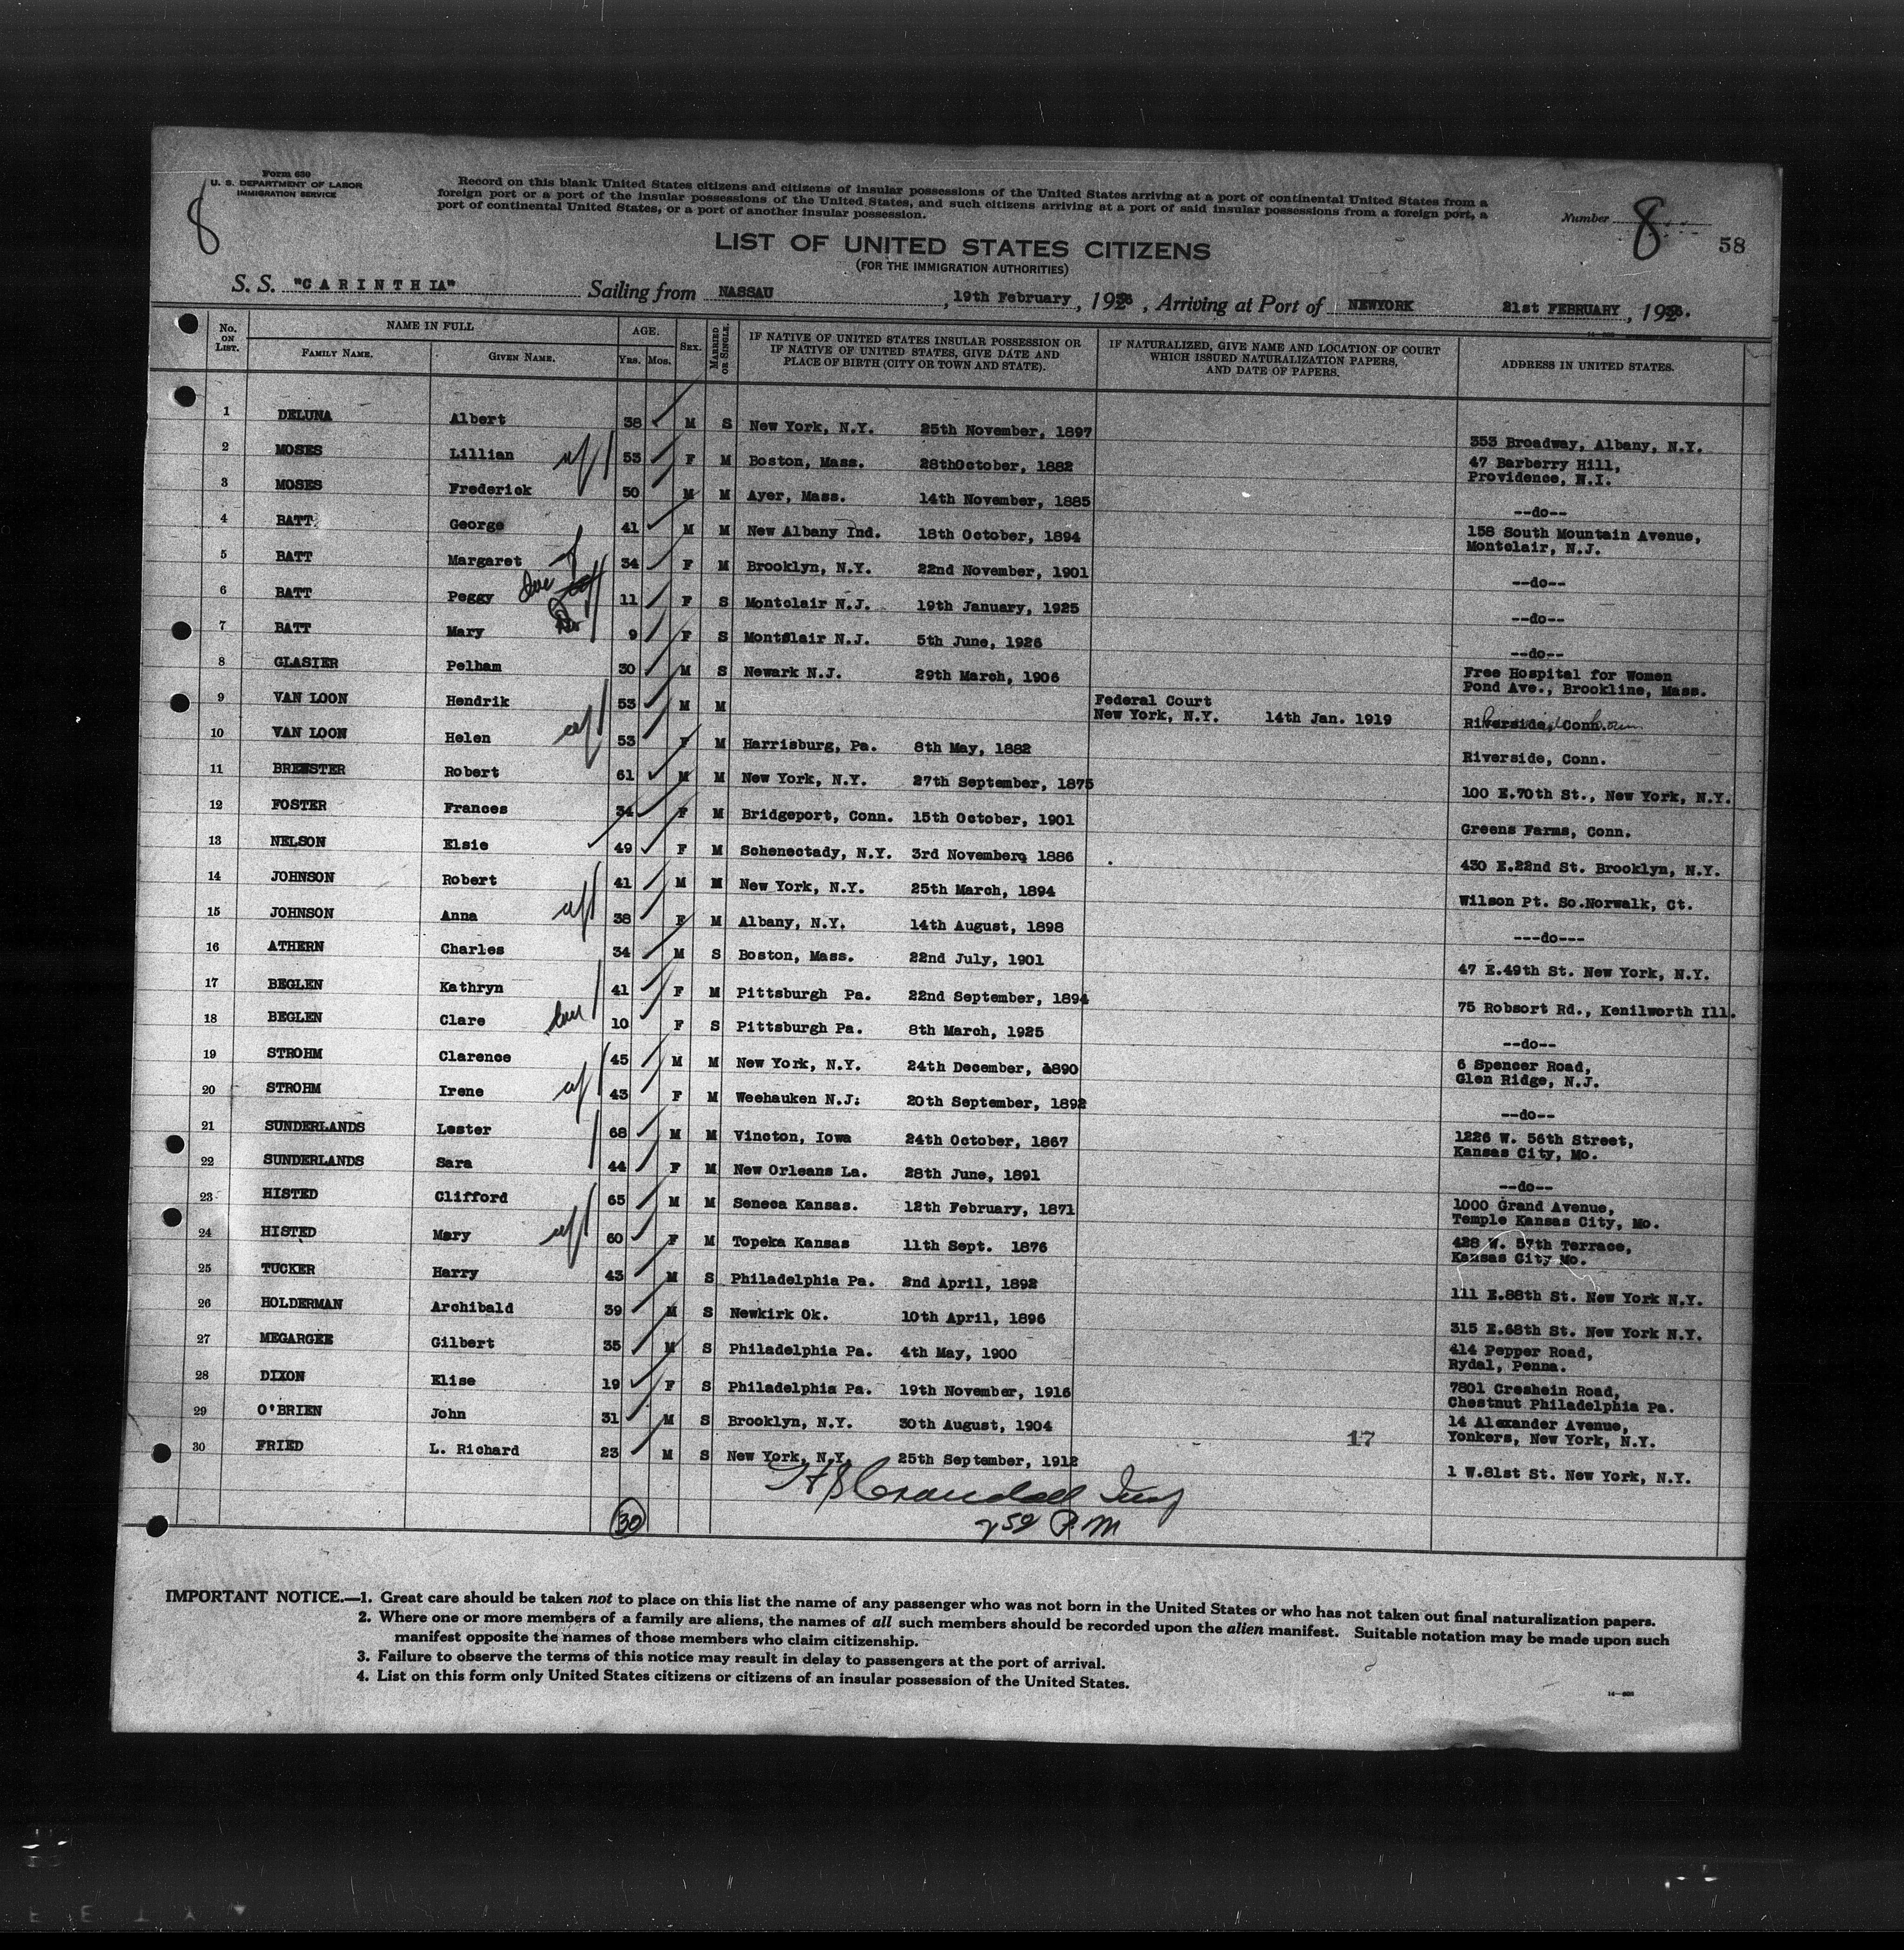 Form 630
U. S. DEPARTMENT OF LABOR
IMMIGRATION SERVICE
8
Record on this blank United States citizens and citizens of insular possessions of the United States arriving at a port of continental United States from a
foreign port or a port of the insular possessions of the United States, and such citizens arriving at a port of said insular possessions from a foreign port, a
port of continental United States, or a port of another insular possession.
Number 8
58
LIST OF UNITED STATES CITIZENS
(FOR THE IMMIGRATION AUTHORITIES)
S. S. "C A R I N T H IA" Sailing from NASSAU, 19th February, 1936, Arriving at Port of NEWYORK 21st FEBRUARY, 1936.
No. ON LIST. NAME IN FULL FAMILY NAME. GIVEN NAME. AGE. YRS. MOS. SEX. MARRIED OR SINGLE. IF NATIVE OF UNITED STATES INSULAR POSSESSION OR IF NATIVE OF UNITED STATES, GIVE DATE AND PLACE OF BIRTH (CITY OR TOWN AND STATE). IF NATURALIZED, GIVE NAME AND LOCATION OF COURT WHICH ISSUED NATURALIZATION PAPERS, AND DATE OF PAPERS. ADDRESS IN UNITED STATES.
1 DELUNA Albert 38 M S New York, N.Y. 25th November, 1897 353 Broadway, Albany, N.Y.
2 MOSES Lillian 53 F M Boston, Mass. 28thOctober, 1882 47 Barberry Hill,
Providence, N.I.
3 MOSES Frederick 50 M M Ayer, Mass. 14th November, 1885 --do--
4 BATT George 41 M M New Albany Ind. 18th October, 1894 158 South Mountain Avenue,
Montclair, N.J.
5 BATT Margaret 34 F M Brooklyn, N.Y. 22nd November, 1901 --do--
6 BATT Peggy 11 F S Montclair N.J. 19th January, 1925 --do--
7 BATT Mary 9 F S Montclair N.J. 5th June, 1926 --do--
8 GLASIER Pelham 30 M S Newark N.J. 29th March, 1906 Free Hospital for Women
Pond Ave., Brookline, Mass.
9 VAN LOON Hendrik 53 M M Federal Court
New York, N.Y. 14th Jan. 1919 Riverside, Conn.
10 VAN LOON Helen 53 F M Harrisburg, Pa. 8th May, 1882 Riverside, Conn.
11 BREWSTER Robert 61 M M New York, N.Y. 27th September, 1875 100 E.70th St., New York, N.Y.
12 FOSTER Frances 34 F M Bridgeport, Conn. 15th October, 1901 Greens Farms, Conn.
13 NELSON Elsie 49 F M Schenectady, N.Y. 3rd November, 1886 430 E.22nd St. Brooklyn, N.Y.
14 JOHNSON Robert 41 M M New York, N.Y. 25th March, 1894 Wilson Pt. So.Norwalk, Ct.
15 JOHNSON Anna 38 F M Albany, N.Y. 14th August, 1898 ---do---
16 ATHERN Charles 34 M S Boston, Mass. 22nd July, 1901 47 E.49th St. New York, N.Y.
17 BEGLEN Kathryn 41 F M Pittsburgh Pa. 22nd September, 1894 75 Robsort Rd., Kenilworth Ill.
18 BEGLEN Clare 10 F S Pittsburgh Pa. 8th March, 1925 --do--
19 STROHM Clarence 45 M M New York, N.Y. 24th December, 1890 6 Spencer Road,
Glen Ridge, N.J.
20 STROHM Irene 43 F M Weehauken N.J. 20th September, 1892 --do--
21 SUNDERLANDS Lester 68 M M Vincton, Iowa 24th October, 1867 1226 W. 56th Street,
Kansas City, Mo.
22 SUNDERLANDS Sara 44 F M New Orleans La. 28th June, 1891 --do--
23 HISTED Clifford 65 M M Seneca Kansas. 12th February, 1871 1000 Grand Avenue,
Temple Kansas City, Mo.
24 HISTED Mary 60 F M Topeka Kansas 11th Sept. 1876 428 W. 57th Terrace,
Kansas City Mo.
25 TUCKER Harry 43 M S Philadelphia Pa. 2nd April, 1892 111 E.88th St. New York N.Y.
26 HOLDERMAN Archibald 39 M S Newkirk Ok. 10th April, 1896 315 E.68th St. New York N.Y.
27 MEGARGEE Gilbert 35 M S Philadelphia Pa. 4th May, 1900 414 Pepper Road,
Rydal, Penna.
28 DIXON Elise 19 F S Philadelphia Pa. 19th November, 1916 7801 Creshein Road,
Chestnut Philadelphia Pa.
29 O'BRIEN John 31 M S Brooklyn, N.Y. 30th August, 1904 14 Alexander Avenue,
Yonkers, New York, N.Y.
17
30 FRIED L. Richard 23 M S New York, N.Y. 25th September, 1912 1 W.81st St. New York, N.Y.
H S Crandall Insp
30 2 52 P.M
IMPORTANT NOTICE.—1. Great care should be taken not to place on this list the name of any passenger who was not born in the United States or who has not taken out final naturalization papers.
2. Where one or more members of a family are aliens, the names of all such members should be recorded upon the alien manifest. Suitable notation may be made upon such
manifest opposite the names of those members who claim citizenship.
3. Failure to observe the terms of this notice may result in delay to passengers at the port of arrival.
4. List on this form only United States citizens or citizens of an insular possession of the United States.